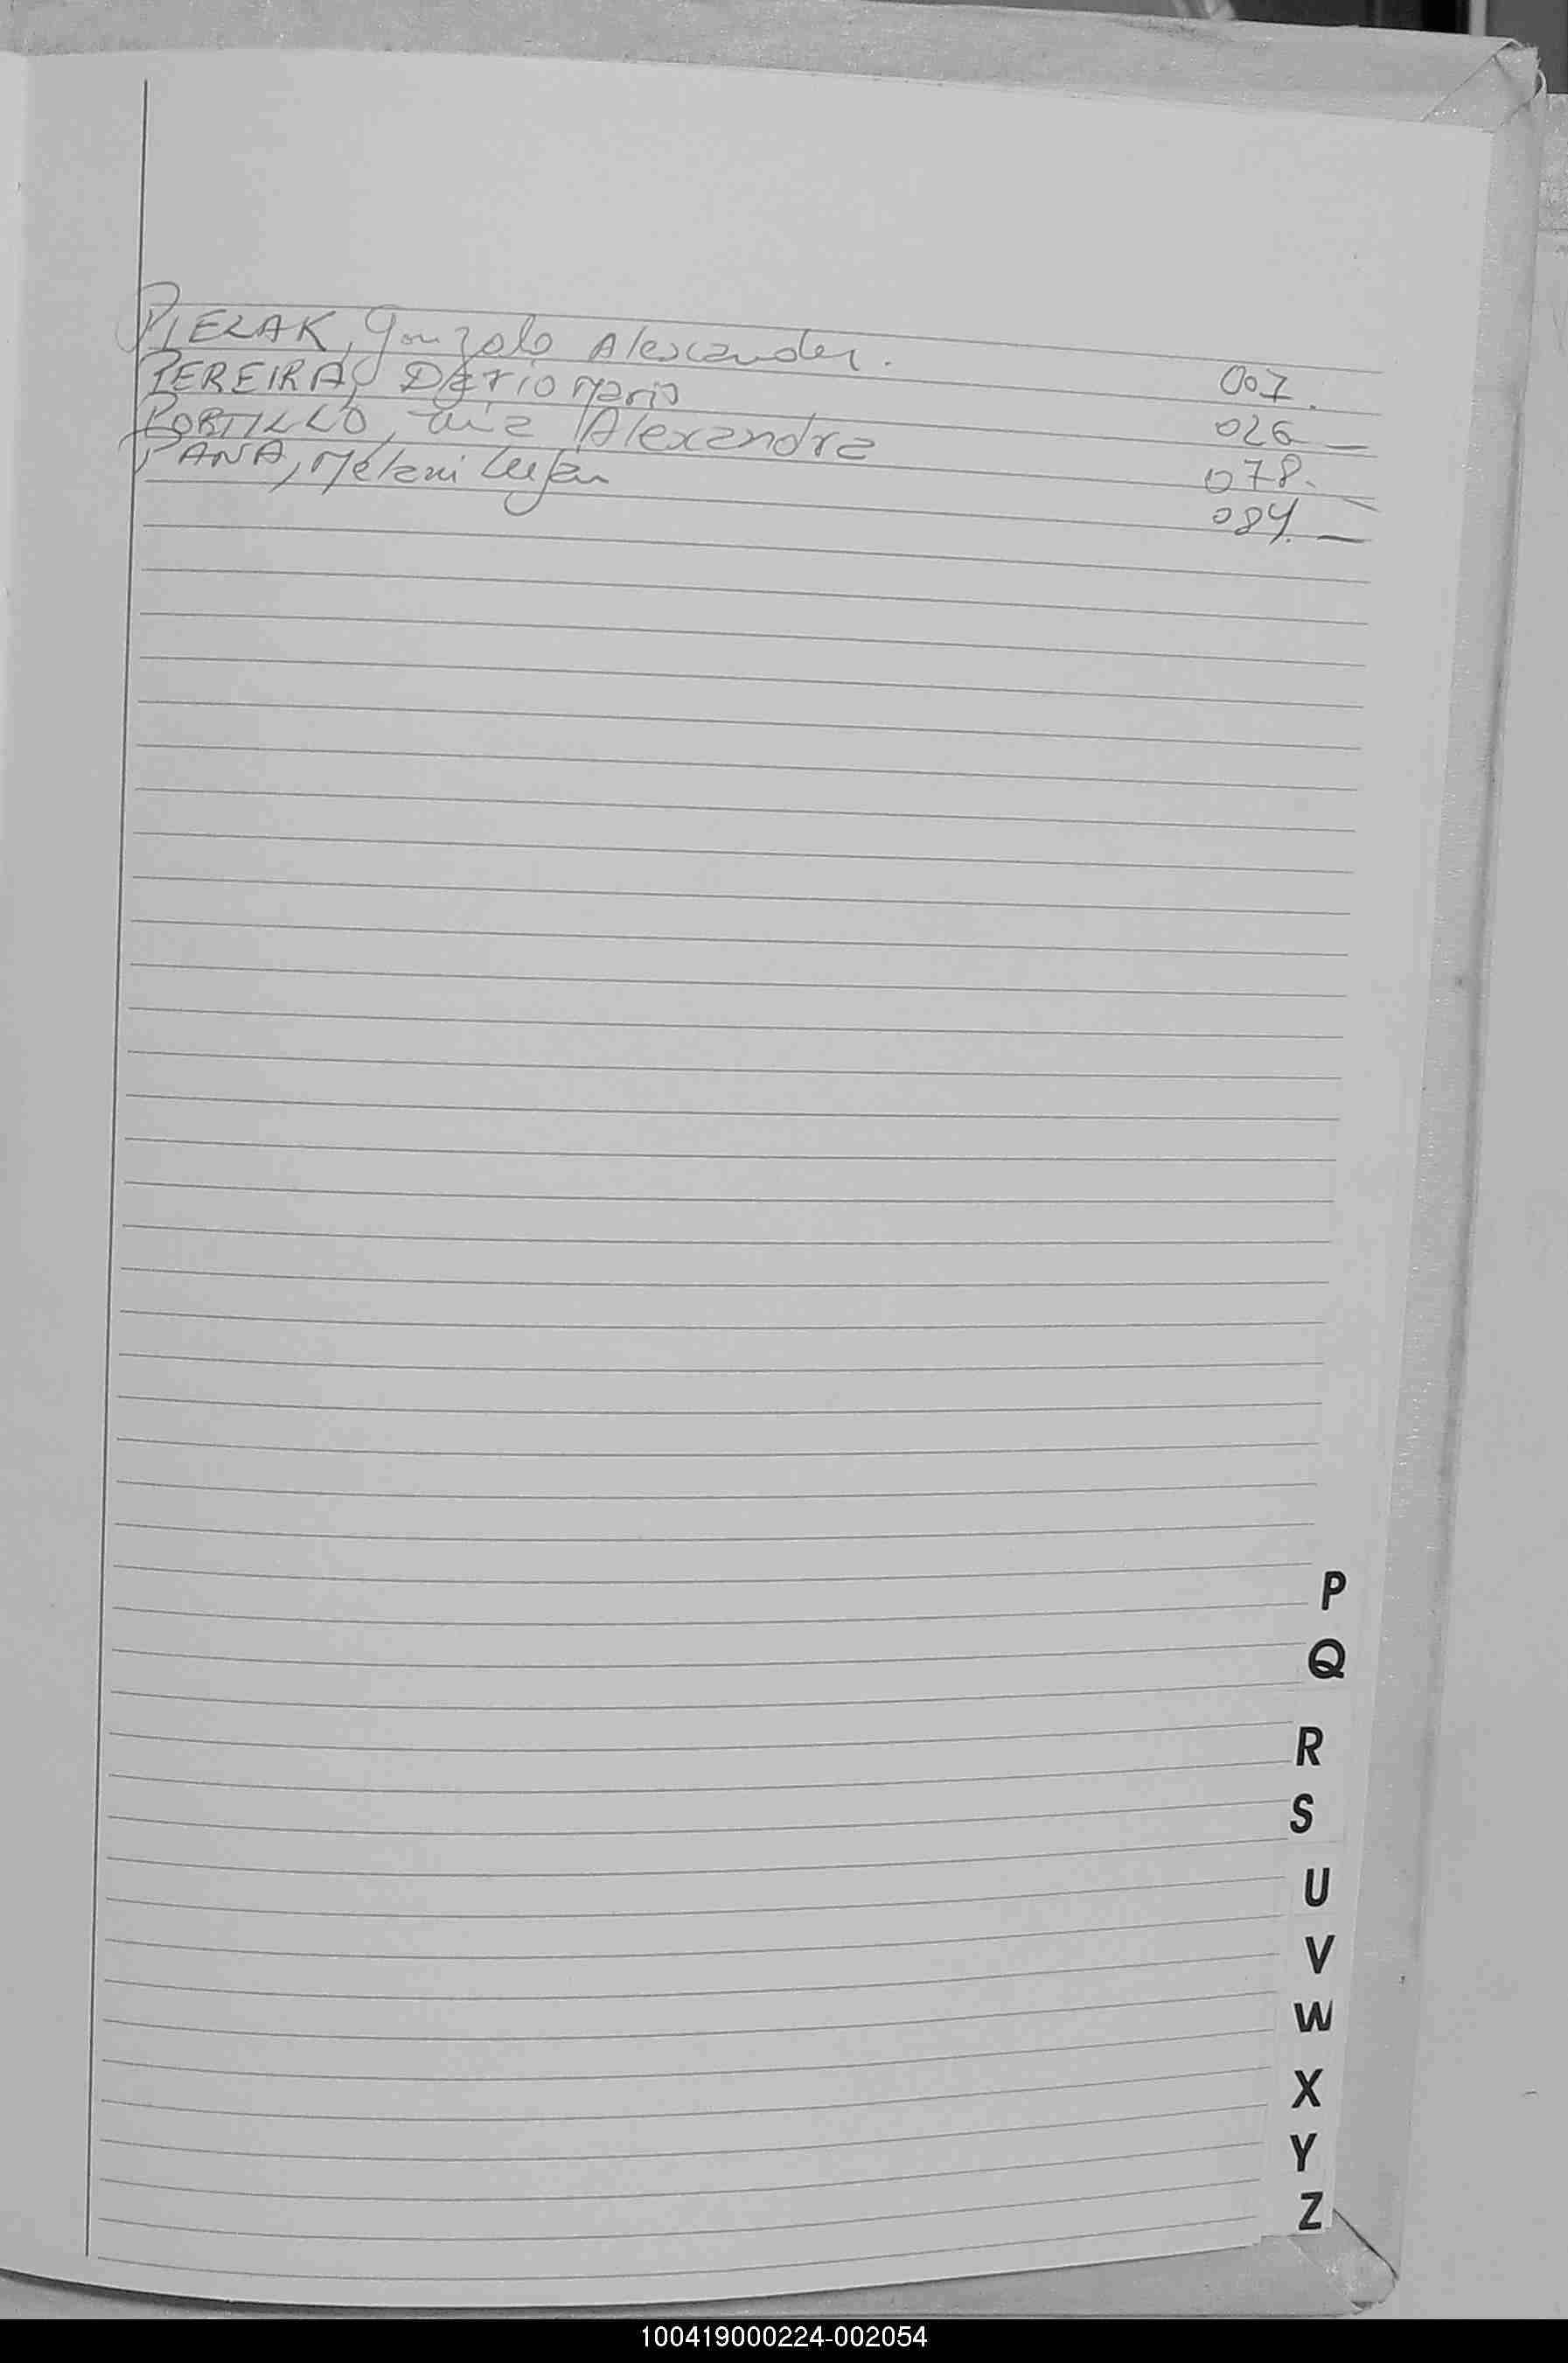 PIELAK, Gonzalo Alexander. 007.
PEREIRA, Dario Mario 026 —
PORTILLO, Alexandra 078. —
PANA, Melani Lujan 084. —
P
Q
R
S
U
V
W
X
Y
Z
100419000224-002054